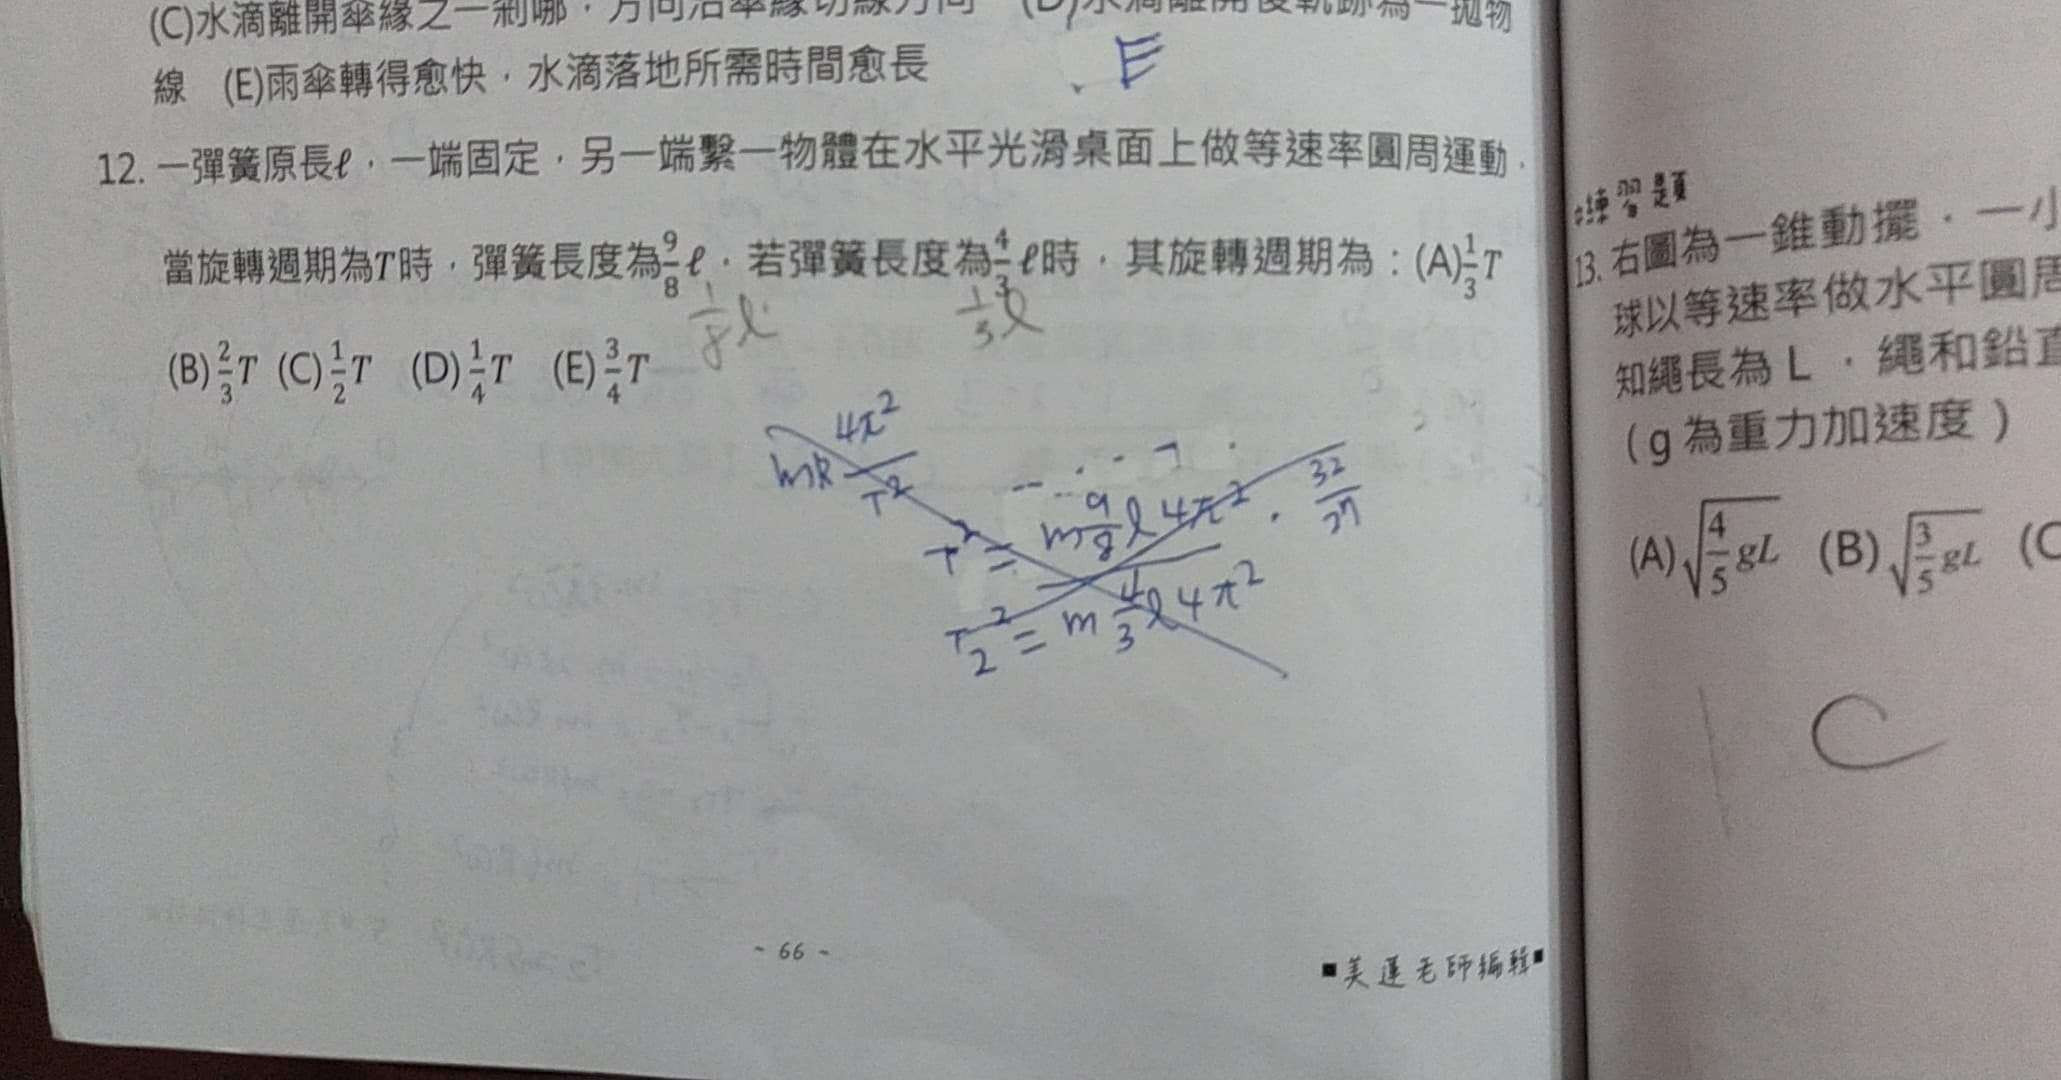 (C)水滴離開傘緣之一剎哪，方向沿傘緣切線方向 (D)水滴離開後軌跡為一拋物
線 (E)雨傘轉得愈快，水滴落地所需時間愈長
E
12. 一彈簧原長ℓ，一端固定，另一端繫一物體在水平光滑桌面上做等速率圓周運動，
當旋轉週期為T時，彈簧長度為9/8 ℓ，若彈簧長度為4/3 ℓ時，其旋轉週期為：(A)1/3 T
1/8 ℓ 1/3 ℓ
(B)2/3 T (C)1/2 T (D)1/4 T (E)3/4 T
mR 4π²/T²
T² = m 9/8 ℓ 4π² · 32/27
T₂² = m 4/3 ℓ 4π²
~ 66 ~
▪美蓮老師編輯▪
練習題
13. 右圖為一錐動擺，一小
球以等速率做水平圓周
知繩長為L，繩和鉛直
(g為重力加速度)
(A)√(4/5 gL) (B)√(3/5 gL) (C
C